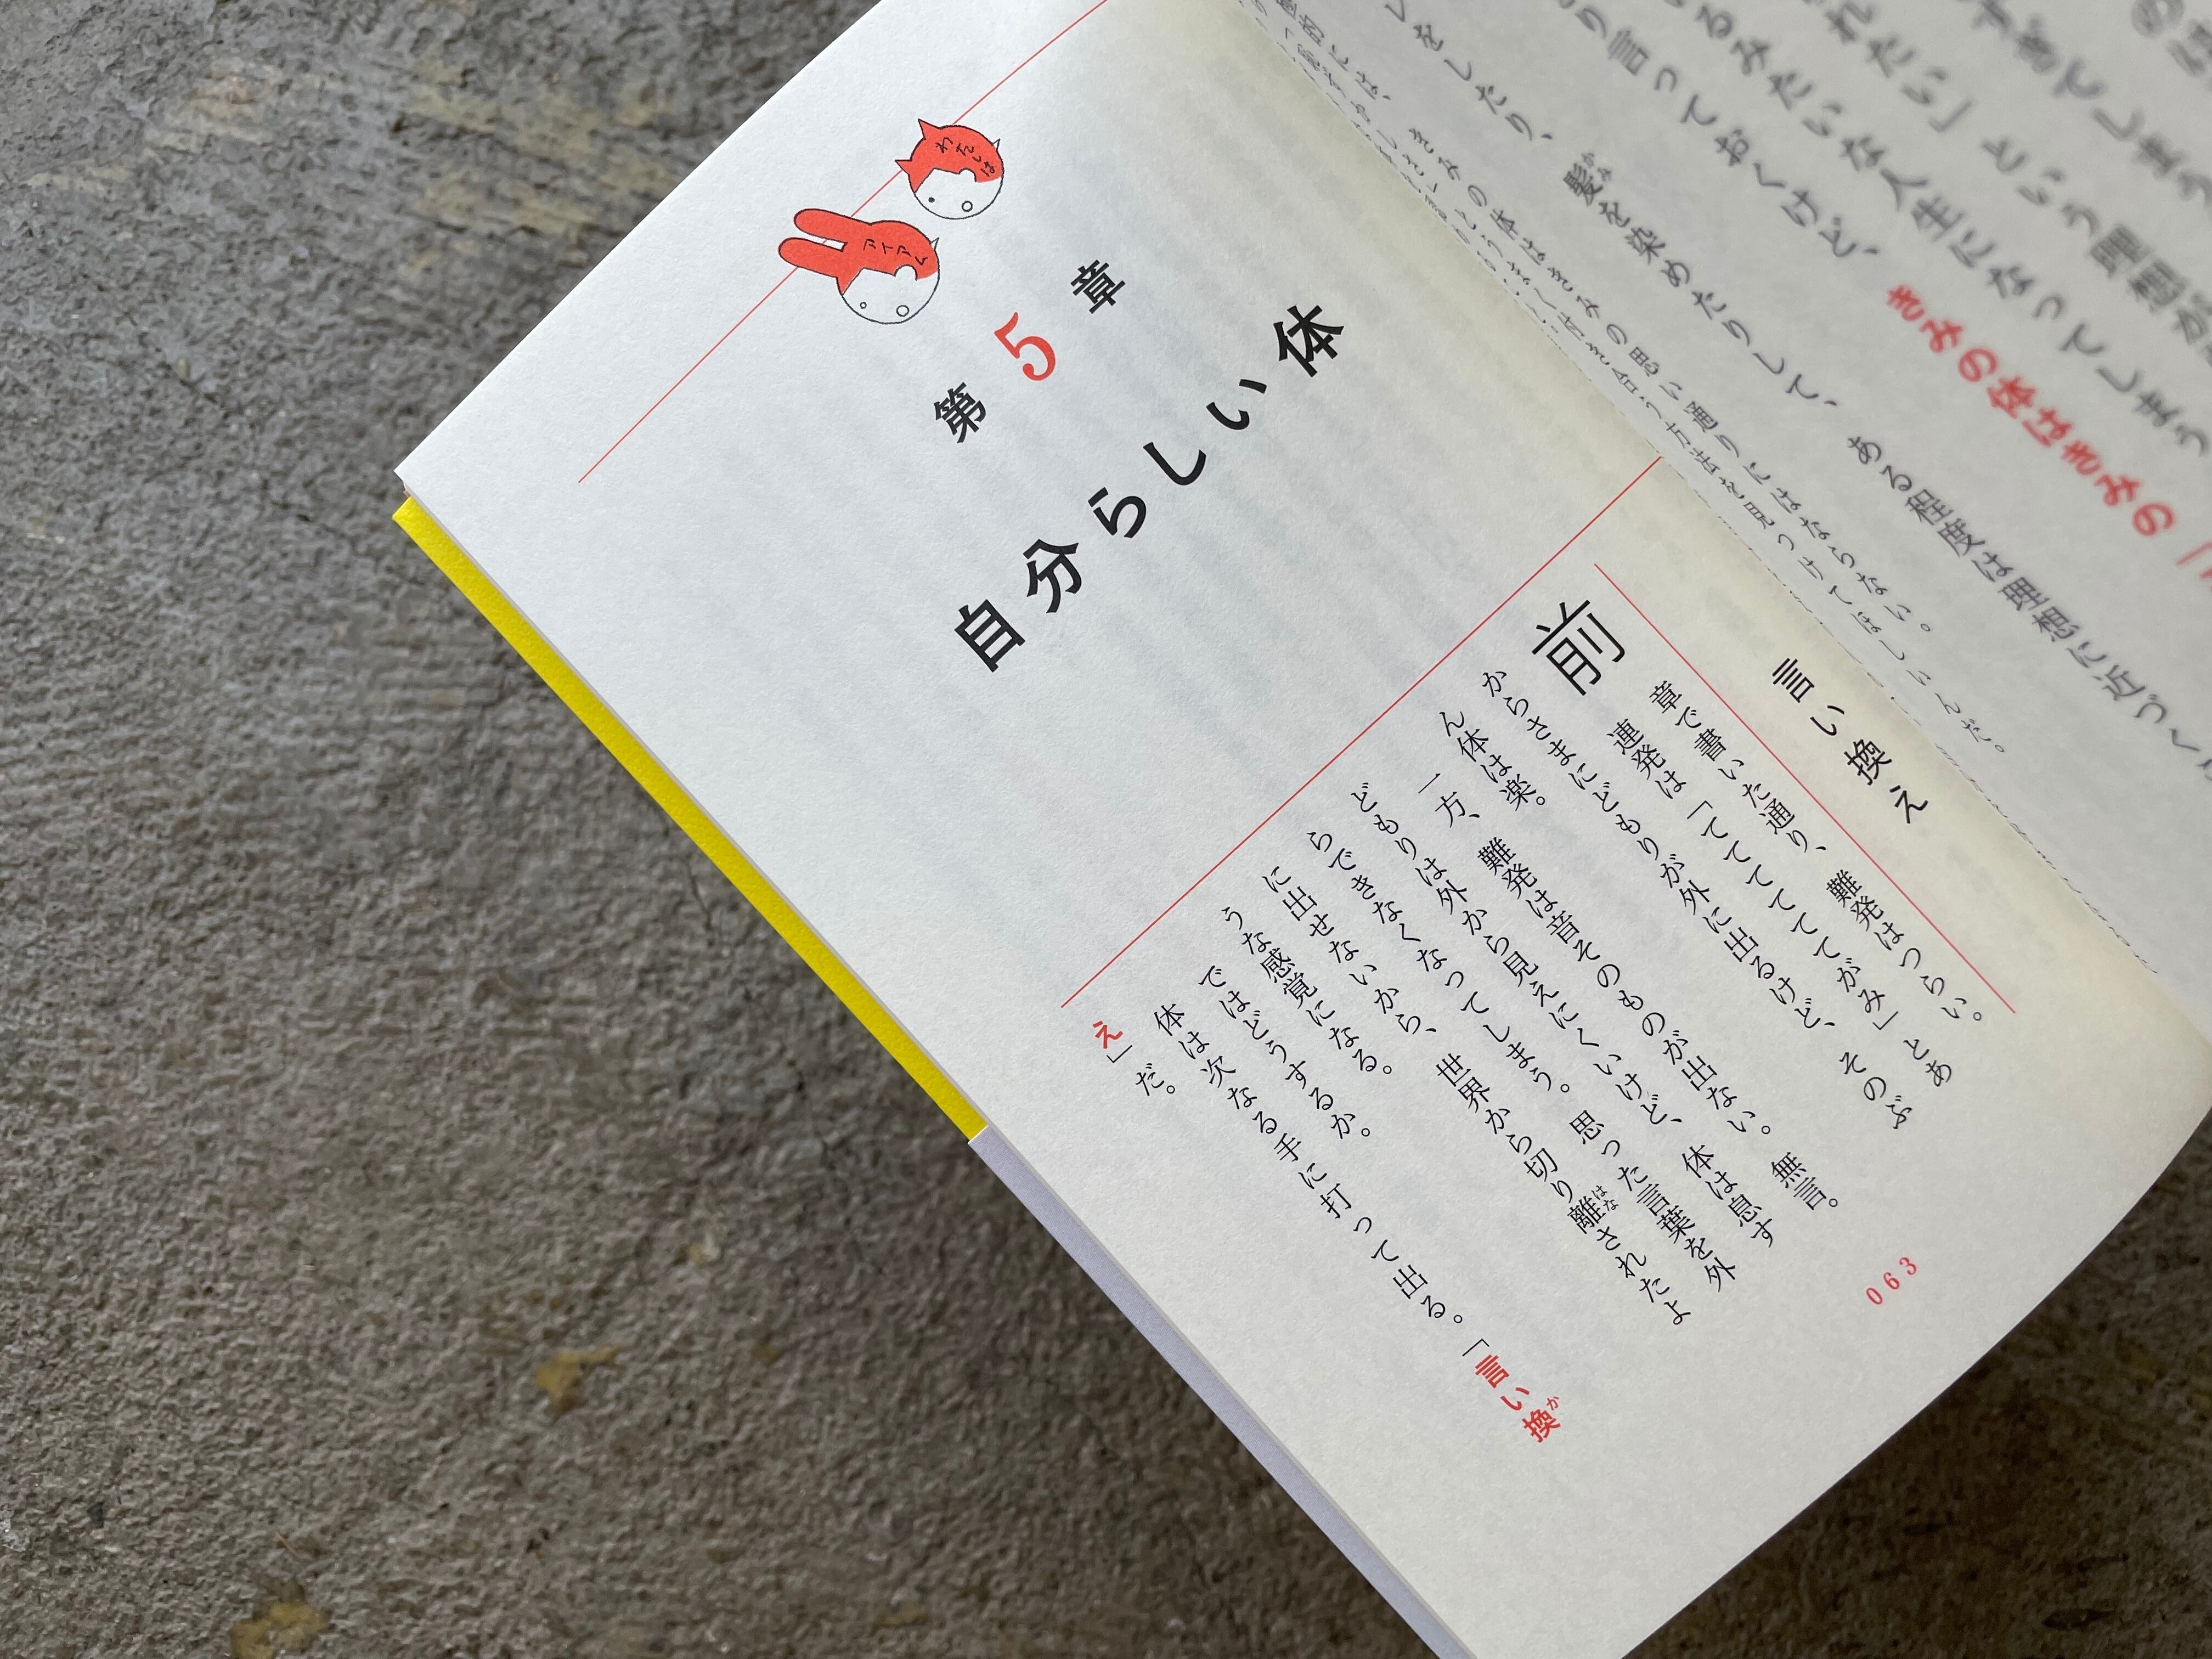 すぎてしまう
れたい」という理想が
るみたいな人生になってしまう
り言っておくけど、きみの体はきみの
しをしたり、髪を染めたりして、ある程度は理想に近づく
極的には、きみの体はきみの思い通りにはならない。
とうまく付き合う方法を見つけてほしいんだ。
わたしは
アイアム
第5章
自分らしい体
言い換え
前章で書いた通り、難発はつらい。
連発は「ててててててがみ」とあ
からさまにどもりが外に出るけど、そのぶ
ん体は楽。
一方、難発は音そのものが出ない。無言。
どもりは外から見えにくいけど、体は息す
らできなくなってしまう。思った言葉を外
に出せないから、世界から切り離されたよ
うな感覚になる。
ではどうするか。
体は次なる手に打って出る。「言い換
え」だ。
063